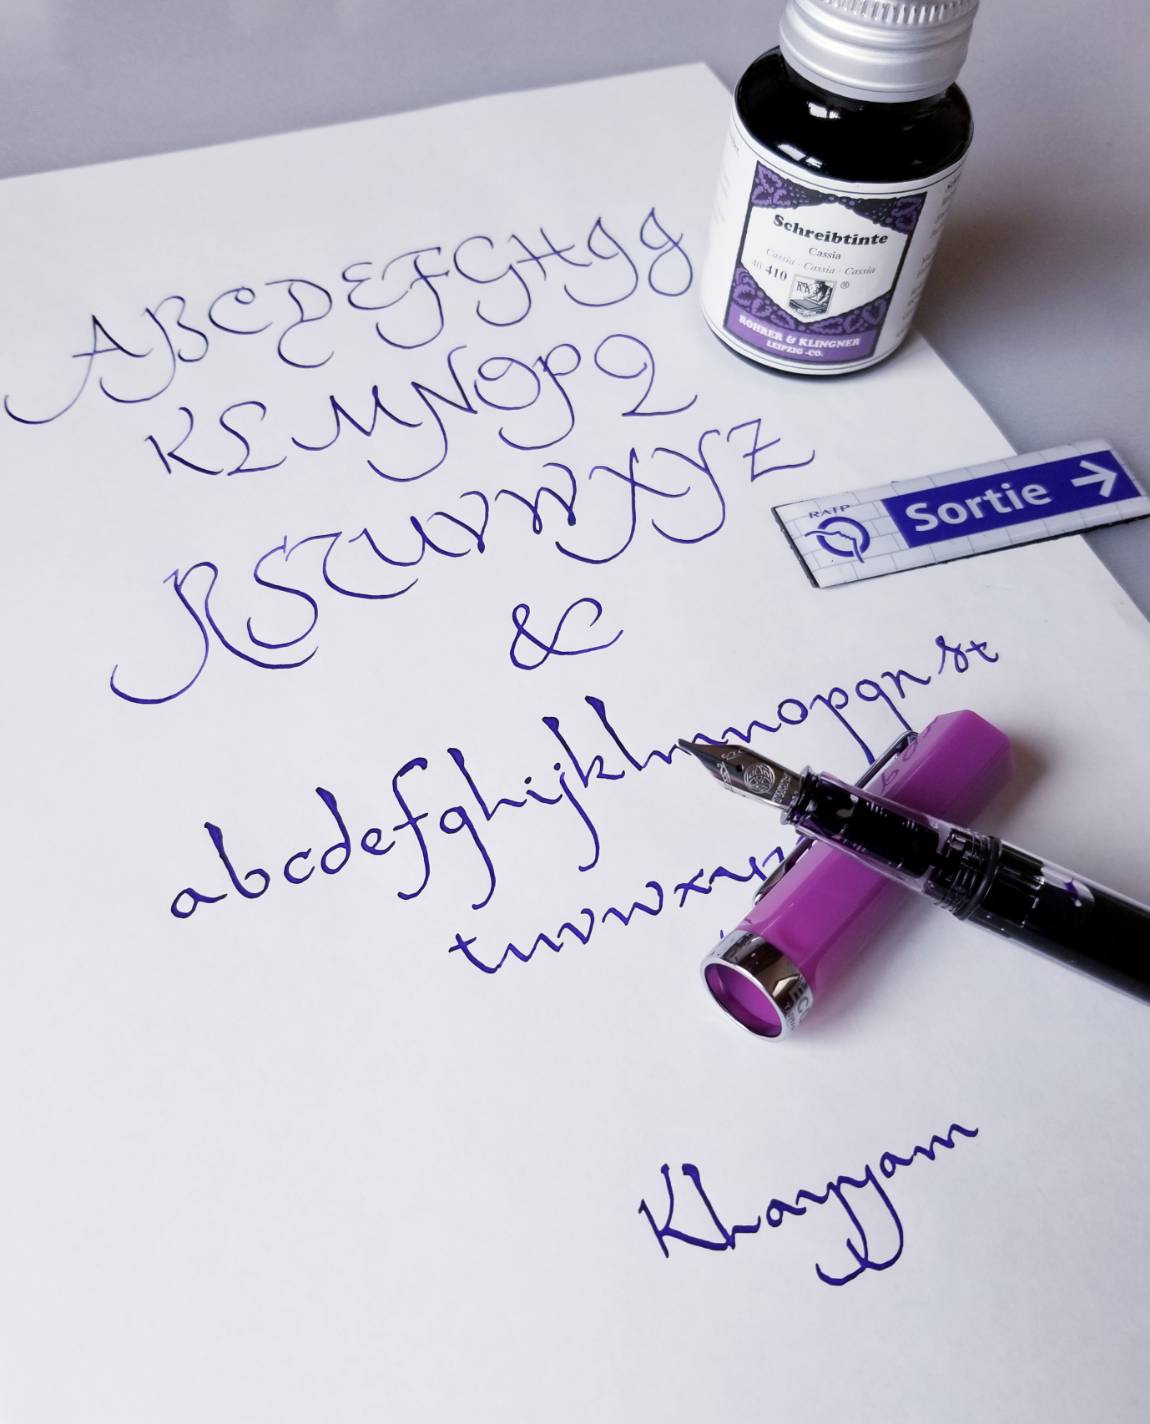 ABCDEFGHIJ
KLMNOPQ
RSTUVWXYZ
&
abcdefghijklmnopqrst
tuvwxy
Khayyam
Schreibtinte
Cassia
Cassia · Cassia · Cassia
40 410
R&K ®
ROHRER & KLINGNER
LEIPZIG -CO.
RATP
Sortie →